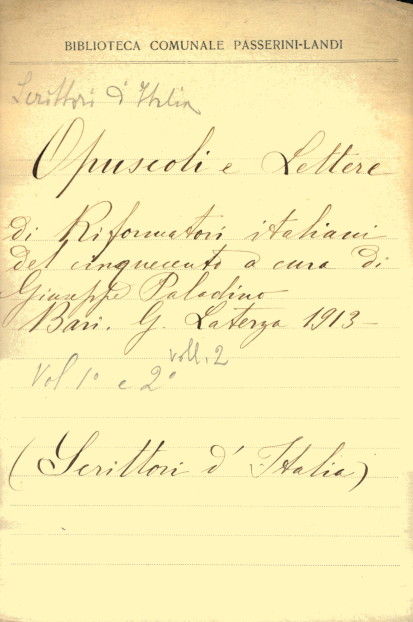 BIBLIOTECA COMUNALE PASSERINI-LANDI
Scrittori d'Italia
Opuscoli e Lettere
di Riformatori italiani
del cinquecento a cura di
Giuseppe Paladino
Bari. G. Laterza 1913-
voll. 2
Vol 1° e 2°
(Scrittori d'Italia)